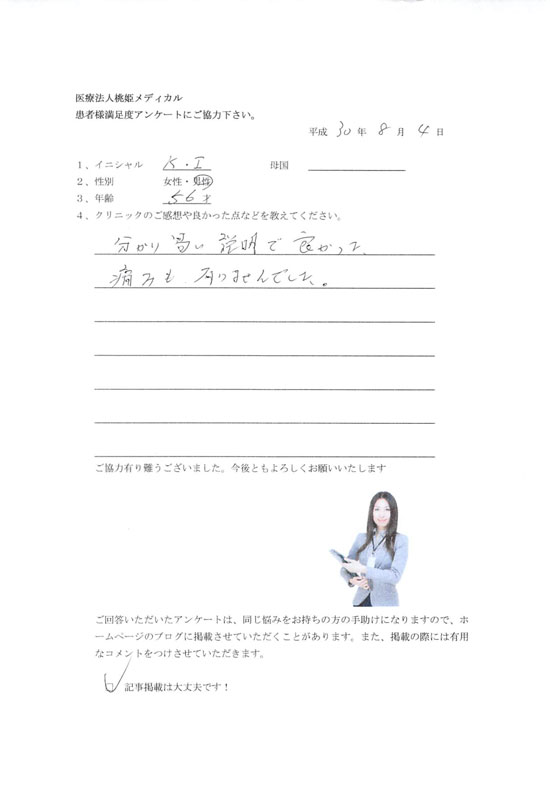 医療法人桃姫メディカル
患者様満足度アンケートにご協力下さい。
平成 30 年 8 月 4 日
1、イニシャル K・I 母国
2、性別 女性・男性
3、年齢 56才
4、クリニックのご感想や良かった点などを教えてください。
分かり易い説明で良かった、
痛みも有りませんでした。
ご協力有り難うございました。今後ともよろしくお願いいたします
ご回答いただいたアンケートは、同じ悩みをお持ちの方の手助けになりますので、ホ
ームページのブログに掲載させていただくことがあります。また、掲載の際には有用
なコメントをつけさせていただきます。
□ 記事掲載は大丈夫です！